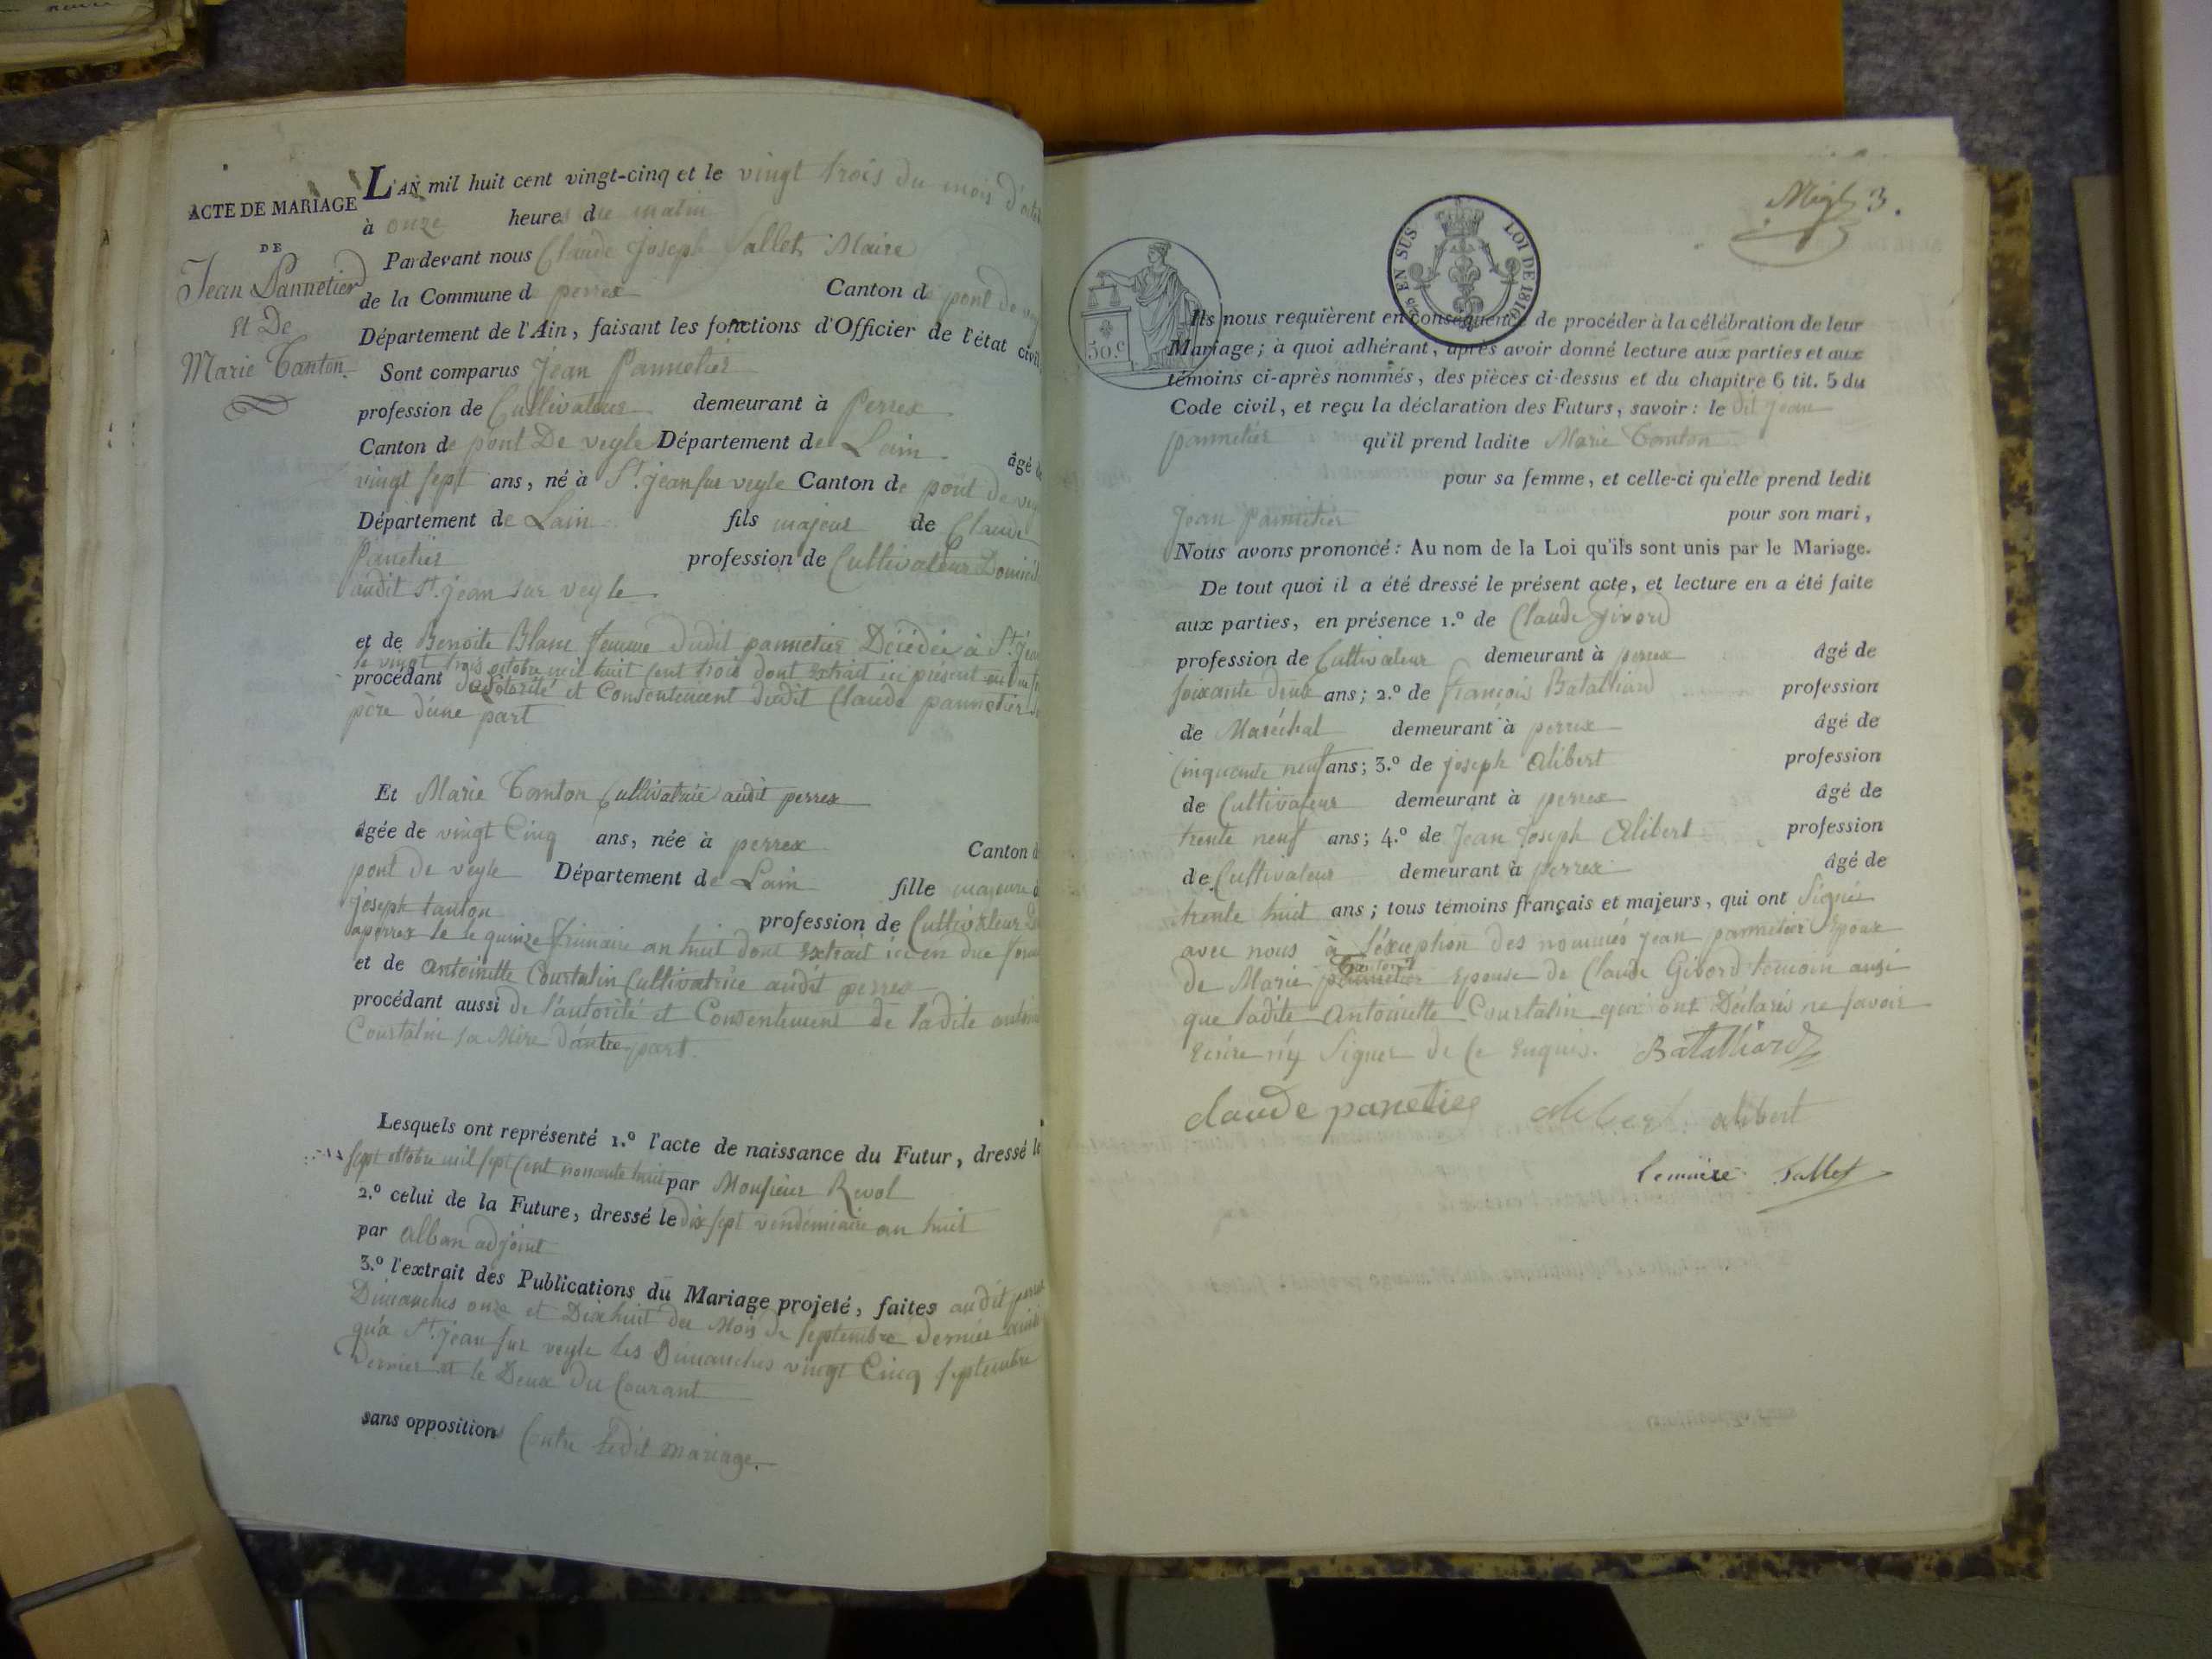 ACTE DE MARIAGE
DE
Jean Pannetier
et De
Marie Tanton
L'AN mil huit cent vingt-cinq et le vingt trois du mois d'octob
à onze heures du matin
Pardevant nous Claude Joseph Sallet Maire
de la Commune de perrex Canton de pont de vey
Département de l'Ain, faisant les fonctions d'Officier de l'état civil
Sont comparus Jean Pannetier
profession de Cultivateur demeurant à Perrex
Canton de pont De veyle Département de Lain âgé de
vingt sept ans, né à St. jean sur veyle Canton de pont de vey
Département de Lain fils majeur de Claude
Panetier profession de Cultivateur Domicil
audit St. jean sur veyle
et de Benoite Blanc femme dudit pannetier Décédée à St. jean
le vingt trois octobre mil huit cent trois dont extrait ici présent en
procédant de l'autorité et Consentement dudit Claude pannetier
père d'une part
Et Marie Tomton Cultivatrice audit perrex
âgée de vingt Cinq ans, née à perrex Canton de
pont de veyle Département de Lain fille majeure de
joseph tanton profession de Cultivateur
a perrex le le quinze frimaire an huit dont extrait ici en due forme
et de antoinette Courtalin Cultivatrice audit perrex
procédant aussi de l'autorité et Consentement de ladite antoin
Courtalin sa Mère d'autre part.
Lesquels ont représenté 1.º l'acte de naissance du Futur, dressé le
sept octobre mil sept cent nonante huit par Monsieur Revol
2.º celui de la Future, dressé le dix sept vendémiaire an huit
par alban adjoint
3.º l'extrait des Publications du Mariage projeté, faites audit perrex
Dimanches onze et Dixhuit du Mois de septembre dernier ainsi
qu'a St. jean sur veyle les Dimanches vingt Cinq septembre
dernier et le Deux du Courant
sans opposition Contre ledit mariage.
3.
5 EN SUS LOI DE 1816
50.c
Ils nous requièrent en conséquence de procéder à la célébration de leur
Mariage; à quoi adhérant, après avoir donné lecture aux parties et aux
témoins ci-après nommés, des pièces ci-dessus et du chapitre 6 tit. 5 du
Code civil, et reçu la déclaration des Futurs, savoir: le dit jean
pannetier qu'il prend ladite Marie Tomton
pour sa femme, et celle-ci qu'elle prend ledit
Jean pannetier pour son mari,
Nous avons prononcé: Au nom de la Loi qu'ils sont unis par le Mariage.
De tout quoi il a été dressé le présent acte, et lecture en a été faite
aux parties, en présence 1.º de Claude Givord
profession de Cultivateur demeurant à perrex âgé de
soixante deux ans; 2.º de françois Batalliard profession
de Maréchal demeurant à perrex âgé de
Cinquante neuf ans; 3.º de joseph Alibert profession
de Cultivateur demeurant à perrex âgé de
trente neuf ans; 4.º de Jean Joseph Alibert profession
de Cultivateur demeurant à perrex âgé de
trente huit ans; tous témoins français et majeurs, qui ont signés
avec nous à l'éxception des nommés jean pannetier Epoux
de Marie pannetier Tanton Epouse de Claude Givord temoin ausi
que ladite Antoinette Courtalin qui ont Déclarés ne savoir
Ecrire n'y Signer de ce Enquis. Batalliard
claude panetier alibert alibert
le maire Sallet